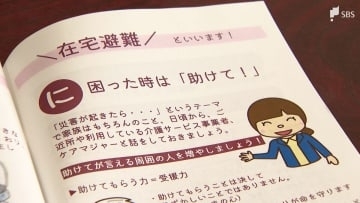 SBS
在宅避難 といいます！
に 困った時は「助けて！」
「災害が起きたら・・・」というテーマ
で家族はもちろんのこと、日頃から、ご
近所や利用している介護サービス事業者、
ケアマジャーと話をしておきましょう。
助けてが言える周囲の人を増やしましょう！
▶助けてもらう力＝受援力
・助けてもらうことは決して
ずかしいことではありません。